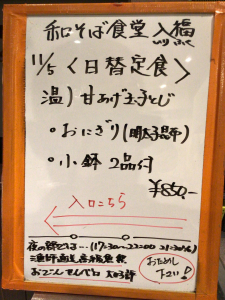 和そば食堂 入福
いりふく
11/5 〈日替定食〉
温) 甘あげ玉子とじ
・おにぎり(明太子昆布)
・小鉢 2品付
¥850.-
入口こちら
夜の部では…(17:30〜22:00 21:30 L.O)
おでこんせんべろ 大好評
おためし
下さい!